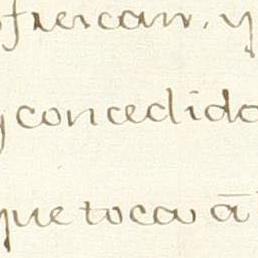 ofrezcan, y
y concedido
que toca a